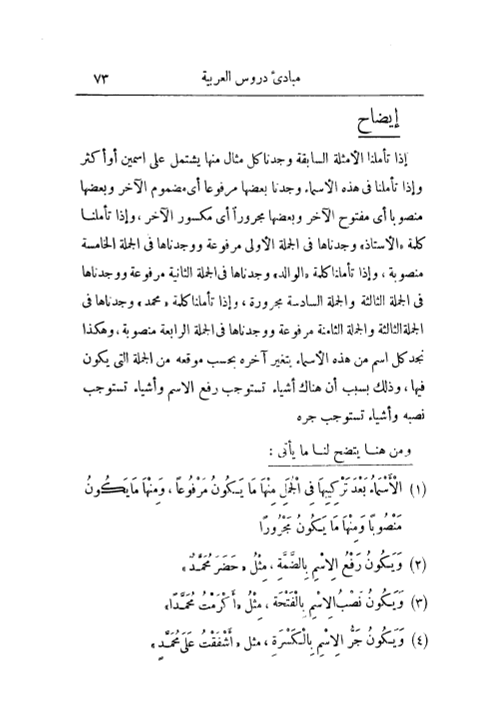 مبادئ دروس العربية ٧٣
إيضاح
إذا تأملنا الأمثلة السابقة وجدنا كل مثال منها يشتمل على اسمين أو أكثر
وإذا تأملنا فى هذه الأسماء وجدنا بعضها مرفوعا أى مضموم الآخر وبعضها
منصوبا أى مفتوح الآخر وبعضها مجروراً أى مكسور الآخر ، وإذا تأملنا
كلمة «الأستاذ» وجدناها فى الجملة الأولى مرفوعة ووجدناها فى الجملة الخامسة
منصوبة ، وإذا تأملنا كلمة «الوالد» وجدناها فى الجملة الثانية مرفوعة ووجدناها
فى الجملة الثالثة والجملة السادسة مجرورة ، وإذا تأملنا كلمة «محمد» وجدناها فى
الجملة الثالثة والجملة الثامنة مرفوعة ووجدناها فى الجملة الرابعة منصوبة ، وهكذا
نجد كل اسم من هذه الأسماء يتغير آخره بحسب موقعه من الجملة التى يكون
فيها ، وذلك بسبب أن هناك أشياء تستوجب رفع الاسم وأشياء تستوجب
نصبه وأشياء تستوجب جره
ومن هنا يتضح لنا ما يأتى :
(١) الْأَسْمَاءُ بَعْدَ تَرْكِيبِهَا فِى الْجُمَلِ مِنْهَا مَا يَكُونُ مَرْفُوعاً ، وَمِنْهَا مَا يَكُونُ
مَنْصُوبًا وَمِنْهَا مَا يَكُونُ مَجْرُورًا
(٢) وَيَكُونُ رَفْعُ الِاسْمِ بِالضَّمَّةِ ، مِثْلُ «حَضَرَ مُحَمَّدٌ»
(٣) وَيَكُونُ نَصْبُ الِاسْمِ بِالْفَتْحَةِ ، مِثْلُ «أَكْرَمْتُ مُحَمَّدًا»
(٤) وَيَكُونُ جَرُّ الِاسْمِ بِالْكَسْرَةِ ، مثل «أَشْفَقْتُ عَلَى مُحَمَّدٍ»